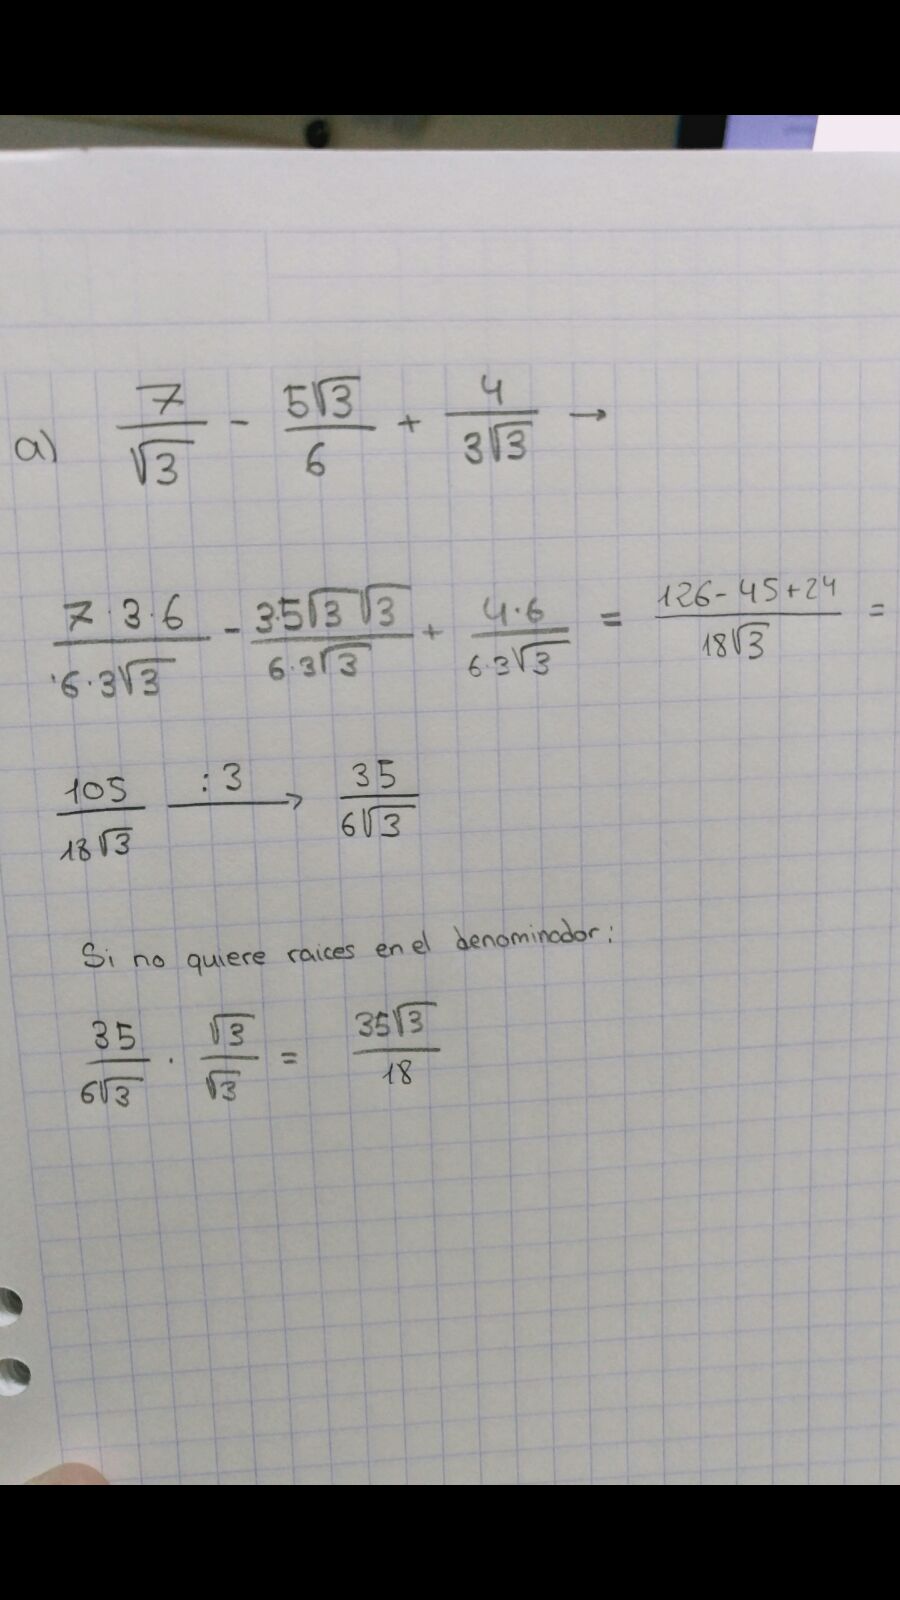 a) 7/√3 - 5√3/6 + 4/3√3 →
7·3·6/6·3√3 - 3·5√3√3/6·3√3 + 4·6/6·3√3 = 126-45+24/18√3 =
105/18√3 :3→ 35/6√3
Si no quiere raices en el denominador:
35/6√3 · √3/√3 = 35√3/18